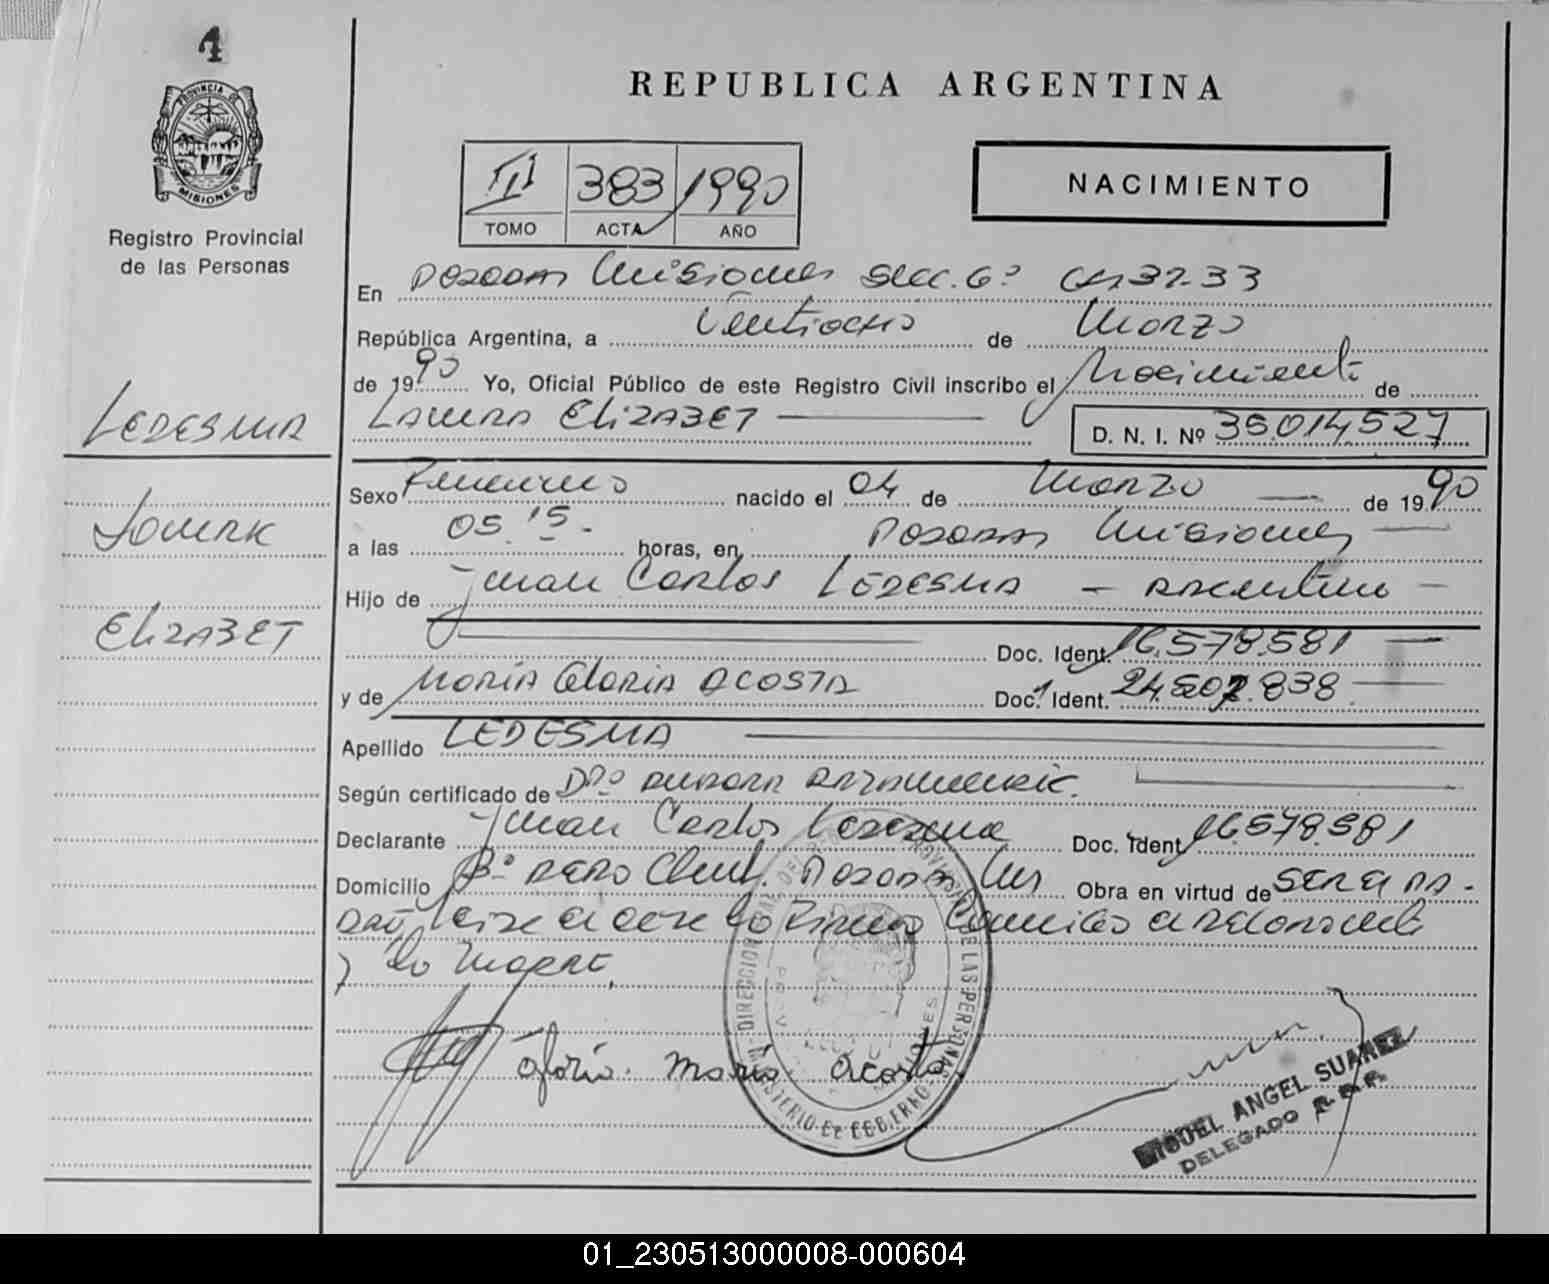 1
PROVINCIA DE
MISIONES
Registro Provincial
de las Personas
LEDESMA
ELIZABET
REPUBLICA ARGENTINA
III 383 1990
TOMO ACTA AÑO
NACIMIENTO
En Posadas Misiones Secc. 6º 32-33
República Argentina, a Veintiocho de Marzo
de 1990 Yo, Oficial Público de este Registro Civil inscribo el Nacimiento de
LAURA ELIZABET
D. N. I. Nº 35.014.527
Sexo Femenino nacido el 04 de Marzo de 1990
a las 05.15 horas, en Posadas Misiones
Hijo de Juan Carlos LEDESMA - Argentino -
Doc. Ident. 16.578.581
y de MARIA GLORIA ACOSTA Doc. Ident. 24.502.838
Apellido LEDESMA
Según certificado de
Declarante Juan Carlos Ledesma Doc. Ident. 16.578.581
Domicilio Bº Posadas Mns Obra en virtud de Ser el pa-
dre
y la Madre
Gloria Maria Acosta
MIGUEL ANGEL SUAREZ
DELEGADO R.P.P.
01_230513000008-000604